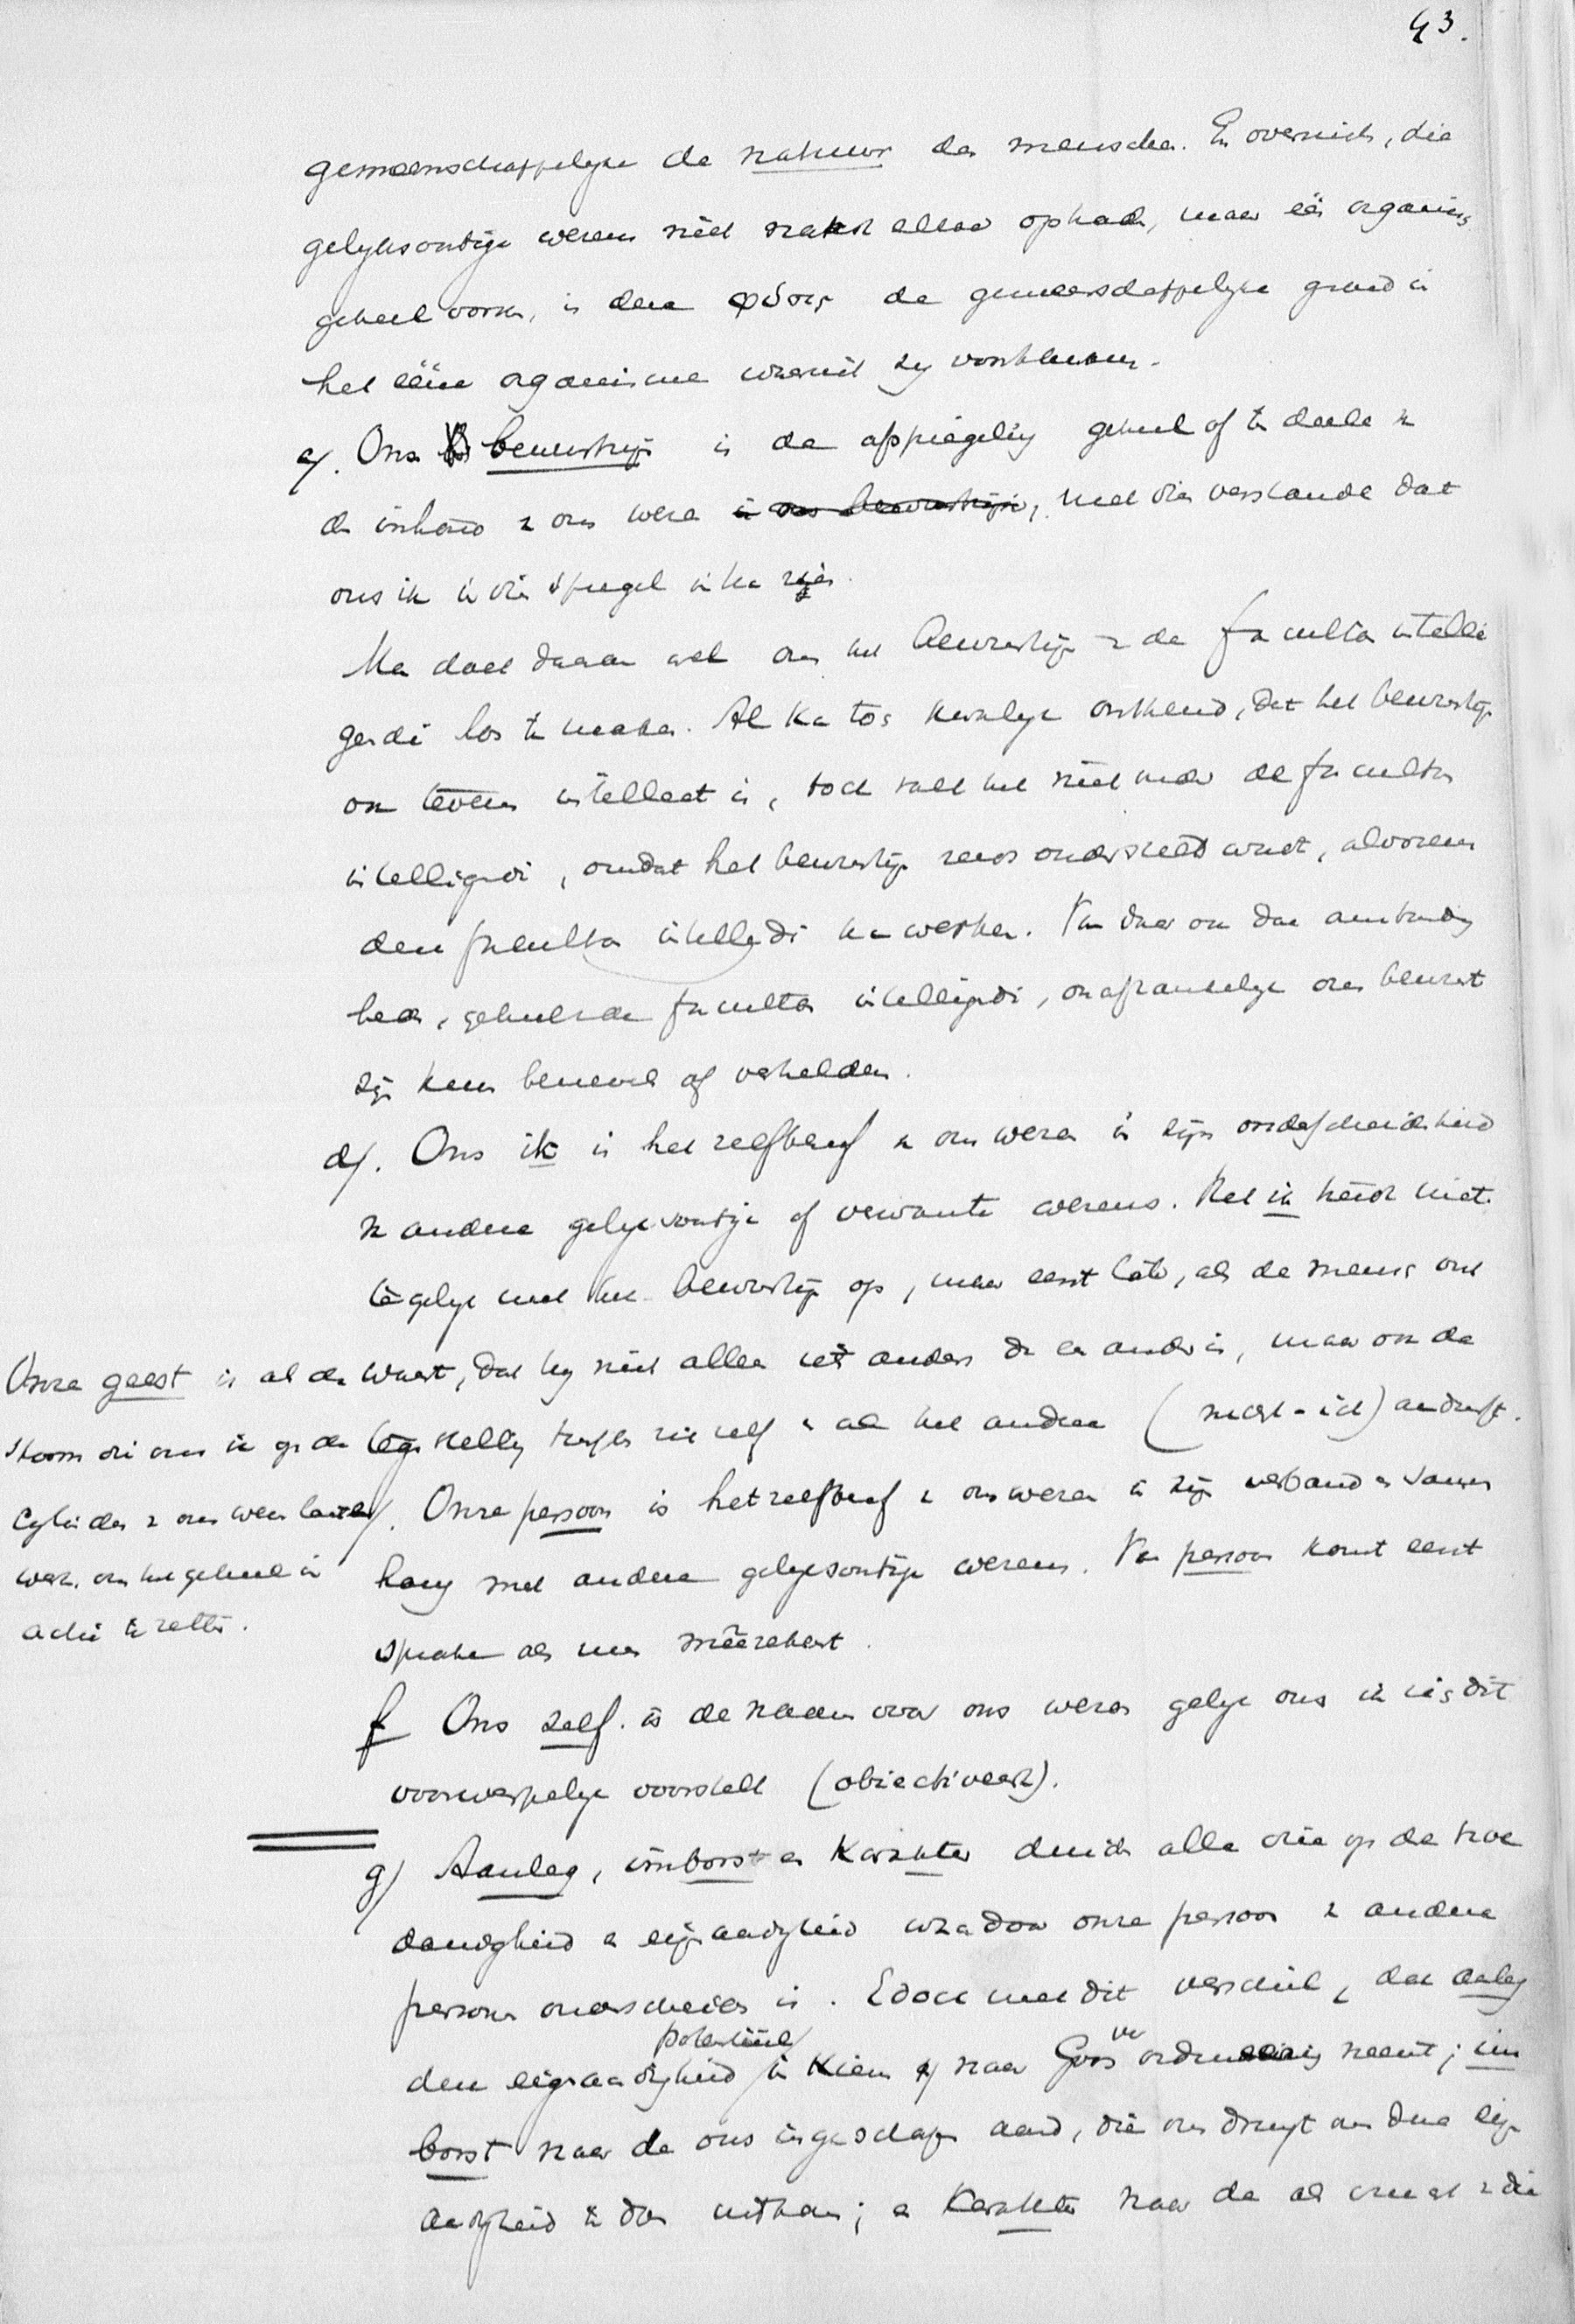 43.
gemeenschappelyke de natuur der menschen. En overmids, die
gelyksoortige wezens niet naast elkaar ophoud, maar één organisch
geheel vormen, is deze φύσις de gemeenschappelyke grond in
het ééne organisme waaruit zy voortkomen.
c/. Ons bewustzijn is de afspiegeling geheel of ten deele van
den inhoud van ons wezen in ons bewustzijn, met dien verstande dat
ons ik in dien spiegel in kan zien.
Men doet daarom wel om het bewustzijn van de facultas intelli
gendi los te maken. Al kan toch kwalyk ontkend, dat het bewustzijn
ook tevens intellect is, toch valt het niet onder de facultas
intelligendi, omdat het bewustzijn reeds ondersteld wordt, alvorens
deze facultas intelligendi kan werken. Van daar ook dat
geheel de facultas intelligendi, onafhankelyk ons bewust
zijn kan benevelen of verhelderen.
d/. Ons ik is het zelfbesef van ons wezen in zijn onderscheidenheid
van andere gelyksoortige of verwante wezens. Het ik treedt niet
tegelyk met het bewustzijn op, maar eerst later, als de mensch ont
waart, dat hy niet alleen iets anders dan een ander is, maar ook de
tegenstelling tusschen zich zelf en al het andere (nicht-ich) aandurft.
Onze geest is als de
stoom die ons ik op de
cylinder van ons wezen laat
werken, om het geheel in
actie te zetten.
e/. Onze persoon is het zelfbesef van ons wezen in zijn verband en samen
hang met andere gelyksoortige wezens. Van persoon komt eerst
sprake als men meerekent.
f Ons zelf. is de naam voor ons wezen gelyk ons ik zich dit
voorwerpelyk voorstelt (obiectiveert).
g) Aanleg, inborst en Karakter duiden alle drie op de hoe
danigheid en eigenaardigheid waardoor onze persoon van andere
personen onderscheiden is. Edoch met dit verschil, dat aanleg
deze eigenaardigheid potentiëel/ in Kiem en naar Gods verordineering neemt; in
borst naar de ons ingeschapen aard, die ons dringt om deze eigen
aardigheid te doen uitkomen; en Karakter naar de als vrucht van die